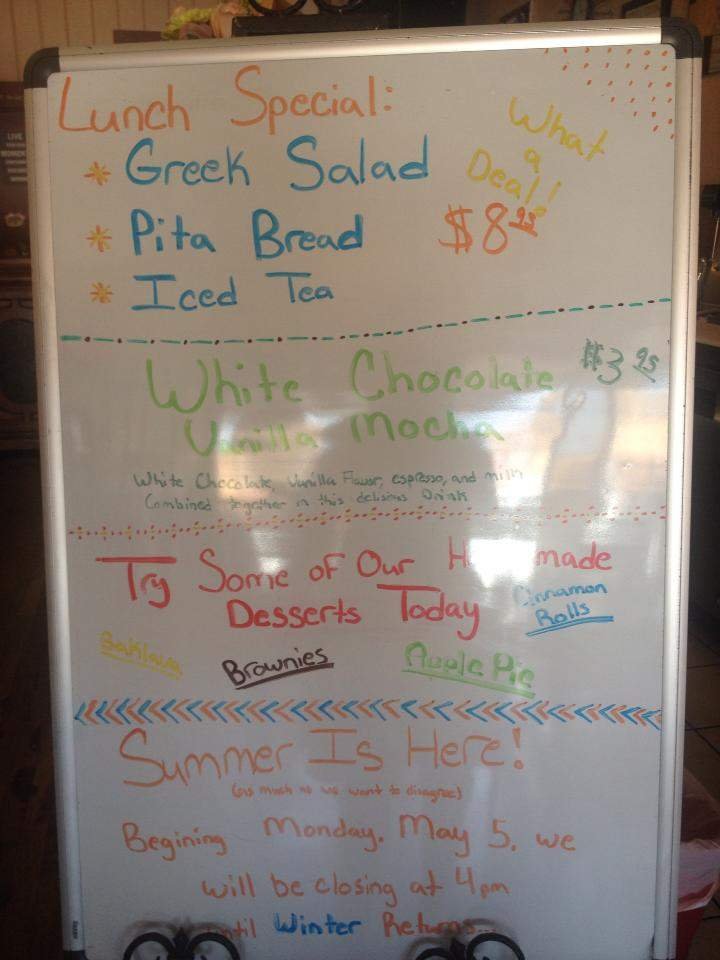 Lunch Special:
* Greek Salad
What a Deal!
* Pita Bread
$8.95
* Iced Tea
White Chocolate
$3.95
Vanilla Mocha
White Chocolate, Vanilla Flavor, espresso, and milk
Combined together in this delisious Drink
Try Some of Our H made
Desserts Today
Cinnamon
Rolls
Baklava
Brownies
Apple Pie
Summer Is Here!
(as much as we want to disagree)
Begining Monday. May 5, we
will be closing at 4pm
until Winter Returns...